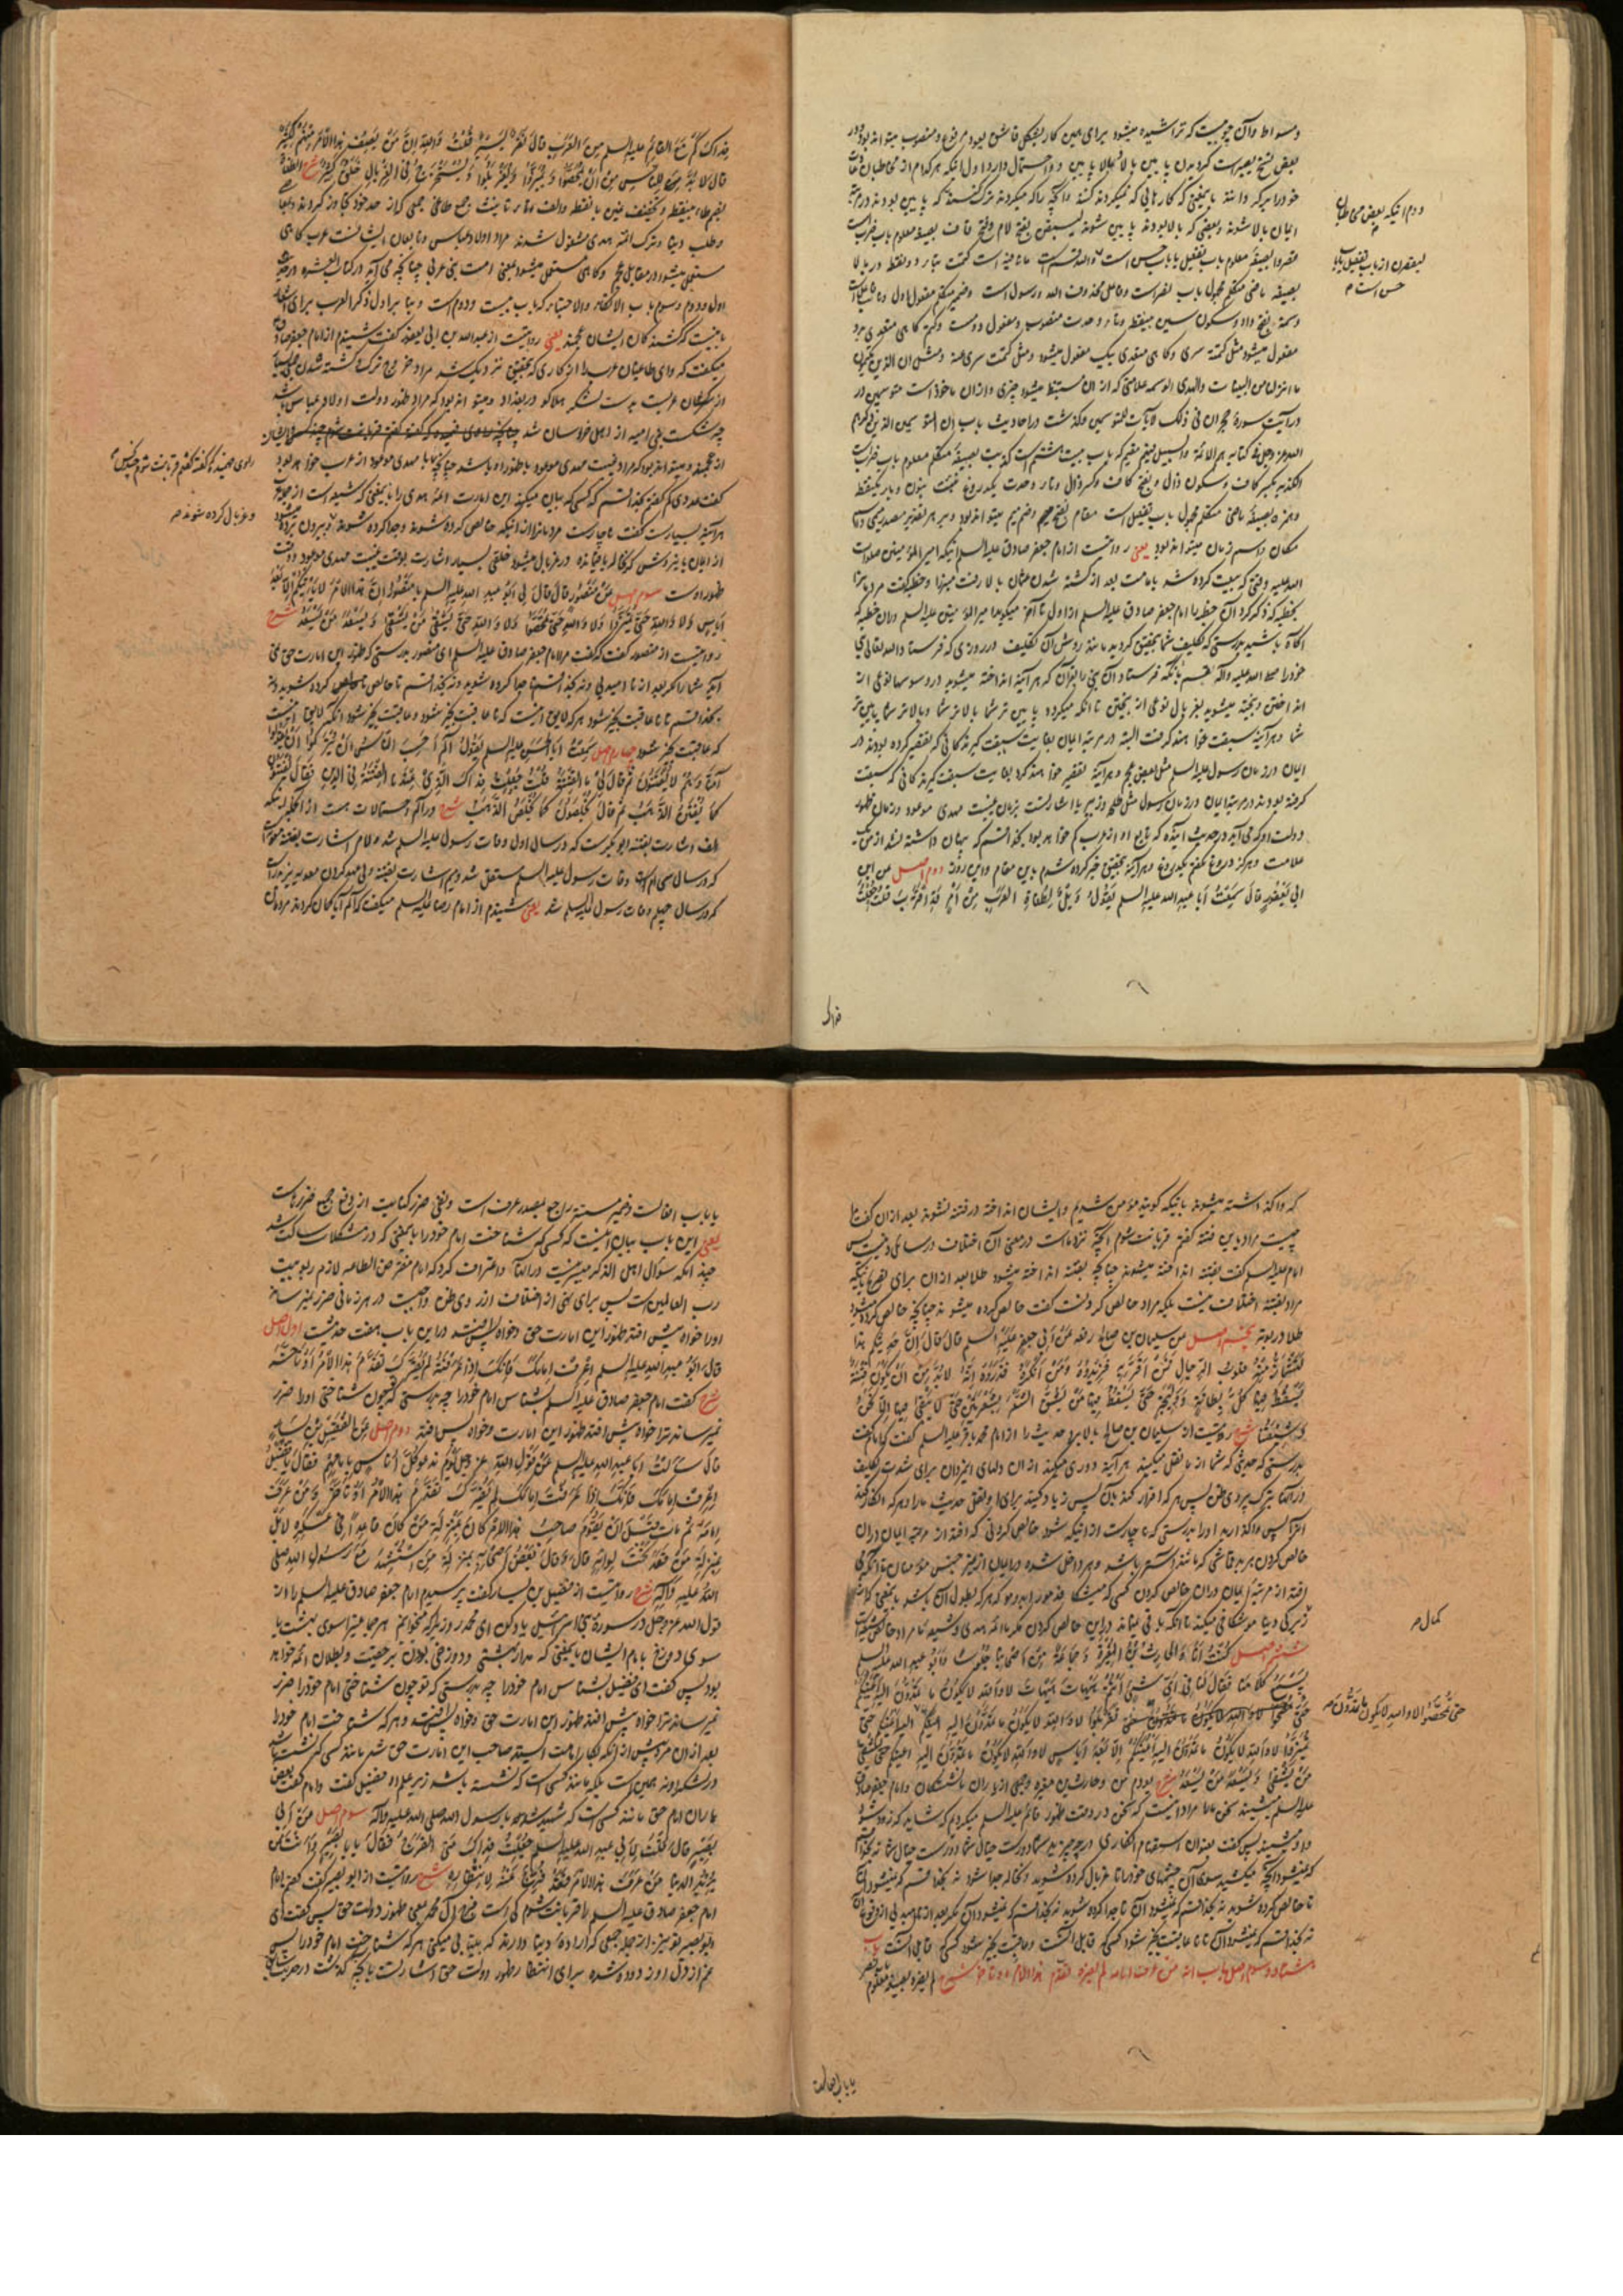 و سواط و آن چوبیست که تراشیده میشود برای همین کار بشکل قاشق بود مرفوع و منصوب میتواند بود و در
بعض نسخ بصیر است گردیدن پایین بالا و بالا پایین دو احتمال دارد اول اینکه هر کدام از مخاطبان
خود را
ایشان بالا شوند و بعضی که بالا بودند پایین شوند لیسبقن بفتح لام و فتح قاف بصیغه معلوم باب ضرب است
قصروا بصیغه معلوم باب تفعیل یا باب حسن است والله قسم است ما نافیه است کتمت بتاء دو نقطه در بالا
بصیغه ماضی متکلم مجهول باب نصر است و فاعل محذوف الله و رسول است و ضمیر متکلم مفعول اول و نایب فاعل است
وسمة بفتح واو و سکون سین بینقطه و تاء وحدت منصوب و مفعول دوم است و کتم گاهی متعدی بدو
مفعول میشود مثل کتمته سری و گاهی متعدی بیک مفعول میشود و مثل کتمت سری عنه و مثل ان الذین یکتمون
ما انزلنا من البینات والهدی الوسمه علامتی که از آن مستنبط میشود چیزی و از آن ماخوذ است متوسمین در
در آیت سوره حجر ان فی ذلک لآیات للمتوسمین و گذشت در احادیث باب ان المتوسمین الذین ذکرهم
الله عز وجل فی کتابه هم الائمة و السبیل فیهم مقیم که باب بیست و هشتم است کذبت بصیغه متکلم معلوم باب ضرب است
الکذبه بکسر کاف و سکون ذال و بفتح کاف و کسر ذال و تاء وحدت یکدروغ نبئت بنون و باء یکنقطه
و همزه بصیغه ماضی متکلم مجهول باب تفعیل است مقام بفتح میم و ضم میم میتواند بود و بر هر تقدیر مصدر میمی و اسم
مکان و اسم زمان میتواند بود یعنی روایتست از امام جعفر صادق علیه السلم اینکه امیر المؤمنین صلوات
الله علیه وقتی که بیعت کرده شد بامامت بعد از کشته شدن عثمان بالا رفت منبر را و خطبه گفت مردمان را
بخطبه که ذکر کرد آن خطبه را امام جعفر صادق علیه السلم از اول تا آخر میگوید امیر المؤمنین علیه السلم در آن خطبه که
آگاه باشید بدرستی که تکلیف شما بتحقیق گردید مانند روش آن تکلیف در روزی که فرستاد الله تعالی نبی
خود را صلی الله علیه وآله قسم بآنکه فرستاد آن نبی را بقرآن که هر آینه انداخته میشوید در وسوسها نوعی از
انداختن و بیخته میشوید بغربال نوعی از بیختن تا آنکه میگردد پایین تر شما بالاتر شما و بالاتر شما پایین تر
شما و هر آینه سبقت خواهند گرفت البته در مرتبه ایمان بغایت سبقت گیرندگانی که تقصیر کرده بودند در
ایمان در زمان رسول علیه السلم مثل بعض عجم و هر آینه تقصیر خواهند کرد بغایت سبقت گیرندگانی که سبقت
گرفته بودند در مرتبه ایمان در زمان رسول مثل طلحه و زبیر یا اشارتست بزمان غیبت مهدی موعود و زمان ظهور
دولت او که می آید در حدیث آینده که تابع او از عرب کم خواهد بود بخدا قسم که پنهان داشته نشد از من یک
علامت و هرگز دروغ نگفتم یکدروغ و هر آینه بتحقیق خبر کرده شدم باین مقام و این روز دوم اصل عن ابن
ابی یعفور قال سمعت ابا عبدالله علیه السلم یقول ویل لطغاة العرب من امر قد اقترب قلت جعلت
دوم اینکه بعض مخاطبان
لیقصرن از باب تفعیل یا باب
حسن است م
فداک
فداک کم مع القائم علیه السلم من العرب قال نفر یسیر قلت والله ان من یصف هذا الامر منهم لکثیر
قال لا بد للناس من ان یمحصوا و یمیزوا و یغربلوا و یستخرج فی الغربال خلق کثیر شرح الطغاة
بضم طاء بینقطه و تخفیف غین با نقطه و الف و تاء تانیث جمع طاغی جمعی که از حد خود تجاوز کردند
و طلب دنیا و ترک ائمه هدی مشغول شدند مراد اولاد عباس و تابعان ایشانست عرب گاهی
مستعمل میشود در مقابل عجم و گاهی مستعمل میشود بمعنی امت نبی عربی چنانچه می آید در کتاب العشره در حدیث
اول و دوم و سوم باب الاتکاء و الاحتباء که باب بیست و دوم است و بنا بر اول ذکر العرب برای
یعنی روایتست از عبدالله بن ابی یعفور گفت شنیدم از امام جعفر صادق
میگفت که وای طاغیان عرب را از کاری که بتحقیق نزدیک شد مراد خروج ترک و کشته شدن
از سرکشان عربست بدست لشکر هلاکو در بغداد و میتواند بود که مراد ظهور دولت اولاد عباس باشد
چه شکست بنی امیه از اهل خراسان شد
از عجمند و میتواند بود که مراد غیبت مهدی موعود یا ظهور او باشد چنانچه
گفت عددی کم گفتم بخدا قسم که کسی که بیان میکند این امارت ائمه هدی را بایمعنی که شیعه است از عرب
هر آینه بسیارست گفت ناچارست مردمان را از اینکه خالص کرده شوند و جدا کرده شوند و بیرون برده میشود
از ایمان در غربال میشود خلقی بسیار اشارت بوقت غیبت مهدی موعود و وقت
ظهور اوست سوم اصل عن منصور قال قال لی ابو عبدالله علیه السلم یا منصور ان هذا الامر لا یاتیکم الا بعد
ایاس ولا والله حتی تمیزوا ولا والله حتی تمحصوا ولا والله حتی یشقی من یشقی و یسعد من یسعد شرح
روایتست از منصور گفت که گفت مرا امام جعفر صادق علیه السلم ای منصور بدرستی که ظهور این امارت حق نمی
آید شما را مگر بعد از نا امیدی و نه بخدا قسم تا جدا کرده شوید و نه بخدا قسم تا خالص کرده شوید و نه
بخدا قسم تا نا عاقبت بخیر شود هر که لایق آنست که نا عاقبت بخیر شود و عاقبت بخیر شود آنکه لایق آنست
که عاقبت بخیر شود چهارم اصل سمعت ابا الحسن علیه السلم یقول الم احسب الناس ان یترکوا ان یقولوا
آمنا وهم لا یفتنون ثم قال لی ما الفتنة قلت جعلت فداک الذی عندنا الفتنة فی الدین فقال یفتنون
کما یفتن الذهب ثم قال یخلصون کما یخلص الذهب شرح در الم احتمالات هست از آنجمله اینکه
الف اشارت بفتنه ابوبکر است که در سال اول وفات رسول علیه السلم شد و لام اشارت بفتنه معویه است
که در سال سی ام از وفات رسول علیه السلم مستقل شد و میم اشارت بفتنه ولی عهد کردن معویه یزید را
که در سال چهلم وفات رسول علیه السلم شد یعنی شنیدم از امام رضا علیه السلم میگفت که الم آیا گمان کردند مردمان
راوی
و غربال کرده شوند م
که واگذاشته میشوند باینکه گویند مؤمن شدیم و ایشان انداخته در فتنه نشوند بعد از آن گفت مرا
چیست مراد باین فتنه گفتم قربانت شوم آنچه نزد ماست در معنی آن اختلاف در مسائل دینست پس
امام علیه السلم گفت بفتنه انداخته میشوند چنانچه بفتنه انداخته میشود طلا بعد از آن برای تصریح باینکه
مراد بفتنه اختلاف نیست بلکه مراد خالص کردنست گفت خالص کرده میشوند چنانچه خالص کرده میشود
طلا در بوته پنجم اصل عن سلیمان بن صالح رفعه عن ابی جعفر علیه السلم قال قال ان حدیثکم هذا
لتشمئز منه قلوب الرجال فمن اقر به فزیدوه و من انکره فذروه انه لا بد من ان یکون فتنة
یسقط فیها کل بطانة و ولیجة حتی یسقط فیها من یشق الشعر بشعرتین حتی لا یبقی فیها الا نحن
و شیعتنا شرح روایتست از سلیمان بن صالح بالا برد حدیث را از امام محمد باقر علیه السلم گفت که امام گفت
بدرستی که حدیثی که شما از ما نقل میکنید هر آینه دوری میکند از آن دلهای مردان برای شدت تکلیف
در آنها بترک پیروی ظن پس هر که اقرار کند بآن پس زیاد کنید برای او نقل حدیث ما را و هر که انکار کند
آنرا پس واگذارید او را بدرستی که ناچارست از اینکه شود خالص کردنی که افتد از مرتبه ایمان در آن
خالص کردن هر بدقماشی که مانند آستر باشد و هر داخل شده در ایمان از غیر جنس مؤمنان تا آنکه می
افتد از مرتبه ایمان در آن خالص کردن کسی که میشکافد مو را بدو مو که هر که بطول آن باشد بایمعنی که از
زیرکی دنیا موشکافی میکند تا آنکه باقی نماند در این خالص کردن مگر ما ائمه هدی و شیعه ما
ششم اصل کنت انا و الحارث بن المغیرة و جماعة من اصحابنا جلوسا و ابو عبدالله علیه السلم
یسمع کلامنا فقال لنا فی ای شیء انتم هیهات هیهات لا والله لا یکون ما تمدون الیه اعینکم
حتی تغربلوا لا والله لا یکون ما تمدون الیه اعینکم حتی
تمیزوا لا والله لا یکون ما تمدون الیه اعینکم الا بعد ایاس لا والله لا یکون ما تمدون الیه اعینکم حتی یشقی
من یشقی و یسعد من یسعد شرح بودم من و حارث بن مغیره و جمعی از یاران ما نشستگان و امام جعفر صادق
علیه السلم میشنید سخن ما را مراد اینست که سخن در وقت ظهور قائم علیه السلم میکردیم که شاید که زود شود
و او میشنید پس گفت بعنوان استفهام انکاری در چه چیزید شما دورست خیال شما دورست خیال شما نه بخدا قسم
که نمیشود آنچه میکشید سوی آن چشمهای خود را تا غربال کرده شوید نه بخدا قسم که نمیشود آن
تا خالص کرده شوید نه بخدا قسم که نمیشود آن تا جدا کرده شوید نه بخدا قسم که نمیشود آن مگر بعد از نا امیدی
نه بخدا قسم که نمیشود آن تا نا عاقبت بخیر شود کسی که قابل آنست و عاقبت بخیر شود کسی که قابل آنست باب
هشتاد و سوم اصل باب انه من عرف امامه لم یضره تقدم هذا الامر او تاخر شرح لم یضره بصیغه معلوم
کمال م
حتی تمحصوا لا والله لا یکون ما تمدون م
یا باب افعالست
یا باب افعالست و ضمیر مستتر راجع بمصدر عرف است و نفی ضرر کنایت از دفع جمیع ضررهاست
یعنی این باب بیان اینست که کسی که شناخت امام خود را بایمعنی که در مشکلات ساکت شد
چه آنکه سؤال اهل الذکر میسر نیست در آنها و اعتراف کرد که امام مفترض الطاعه لازم ربوبیت
رب العالمین است پس برای نهی از اختلاف از روی ظن واجبست در هر زمانی ضرر نمیرساند
او را خواه پیش افتد ظهور این امارت حق و خواه پس افتد در این باب هفت حدیثست اول اصل
قال ابو عبدالله علیه السلم اعرف امامک فانک اذا عرفته لم یضرک تقدم هذا الامر او تاخر
شرح گفت امام جعفر صادق علیه السلم بشناس امام خود را چه بدرستی که چون شناختی او را ضرر
نمیرساند ترا خواه پیش افتد ظهور این امارت و خواه پس افتد دوم اصل عن الفضیل بن یسار
قال سالت ابا عبدالله علیه السلم عن قول الله عز وجل یوم ندعو کل اناس بامامهم فقال یا فضیل
اعرف امامک فانک اذا عرفت امامک لم یضرک تقدم هذا الامر او تاخر و من عرف
امامه ثم مات قبل ان یقوم صاحب هذا الامر کان بمنزلة من کان قاعدا فی عسکره لا بل
بمنزلة من قعد تحت لوائه قال و قال بعض اصحابه بمنزلة من استشهد مع رسول الله صلی
الله علیه وآله شرح روایتست از فضیل بن یسار گفت پرسیدم امام جعفر صادق علیه السلم را از
قول الله عز وجل در سوره بنی اسرائیل یاد کن ای محمد روزی را که میخوانیم هر جماعتی را سوی بهشت یا
سوی دوزخ با امام ایشان بایمعنی که مدار بهشتی و دوزخی بودن بر حقیت و بطلان ائمه خواهد
بود پس گفت ای فضیل بشناس امام خود را چه بدرستی که تو چون شناختی امام خود را ضرر
نمیرساند ترا خواه پیش افتد ظهور این امارت حق و خواه پس افتد و هر که شناخت امام خود را
بعد از آن مرد پیش از آنکه بکار امامت ایستد صاحب این امارت حق شد مانند کسی که نشست باشد
در لشکر او نه همین است بلکه مانند کسی است که نشسته باشد زیر علم او فضیل گفت و امام گفت بعض
یاران امام حق مانند کسی است که شهید شده با رسول الله صلی الله علیه وآله سوم اصل عن ابی
بصیر قال قلت لابی عبدالله علیه السلم جعلت فداک متی الفرج فقال یا با بصیر و انت ممن
یرید الدنیا من عرف هذا الامر فقد فرج عنه لانتظاره شرح روایتست از ابو بصیر گفت گفتم
امام جعفر صادق علیه السلم را قربانت شوم کی است فرج آل محمد یعنی ظهور دولت حق پس گفت ای
ابو بصیر تو نیز از جمله جمعی که اراده دنیا دارند که بیتابی میکنی هر که شناخت امام خود را پس
غم از دل او زدوده شده برای انتظار ظهور دولت حق اشارتست بآنچه گذشت در حدیث